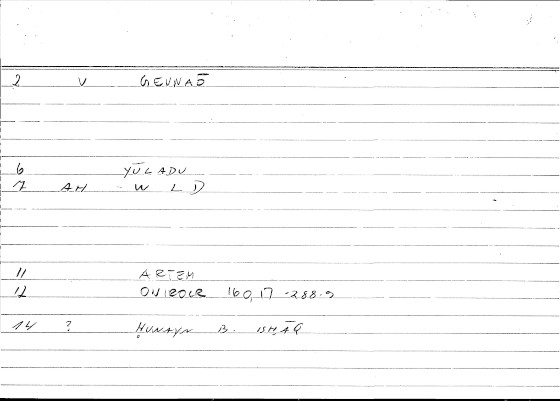 2 V GEVNAŌ
6 YŪLADU
7 AH W L D
11 ARTEM
12 ONIROCR 160,17 -288.9
14 ? ḤUNAYN B. ISḤĀQ